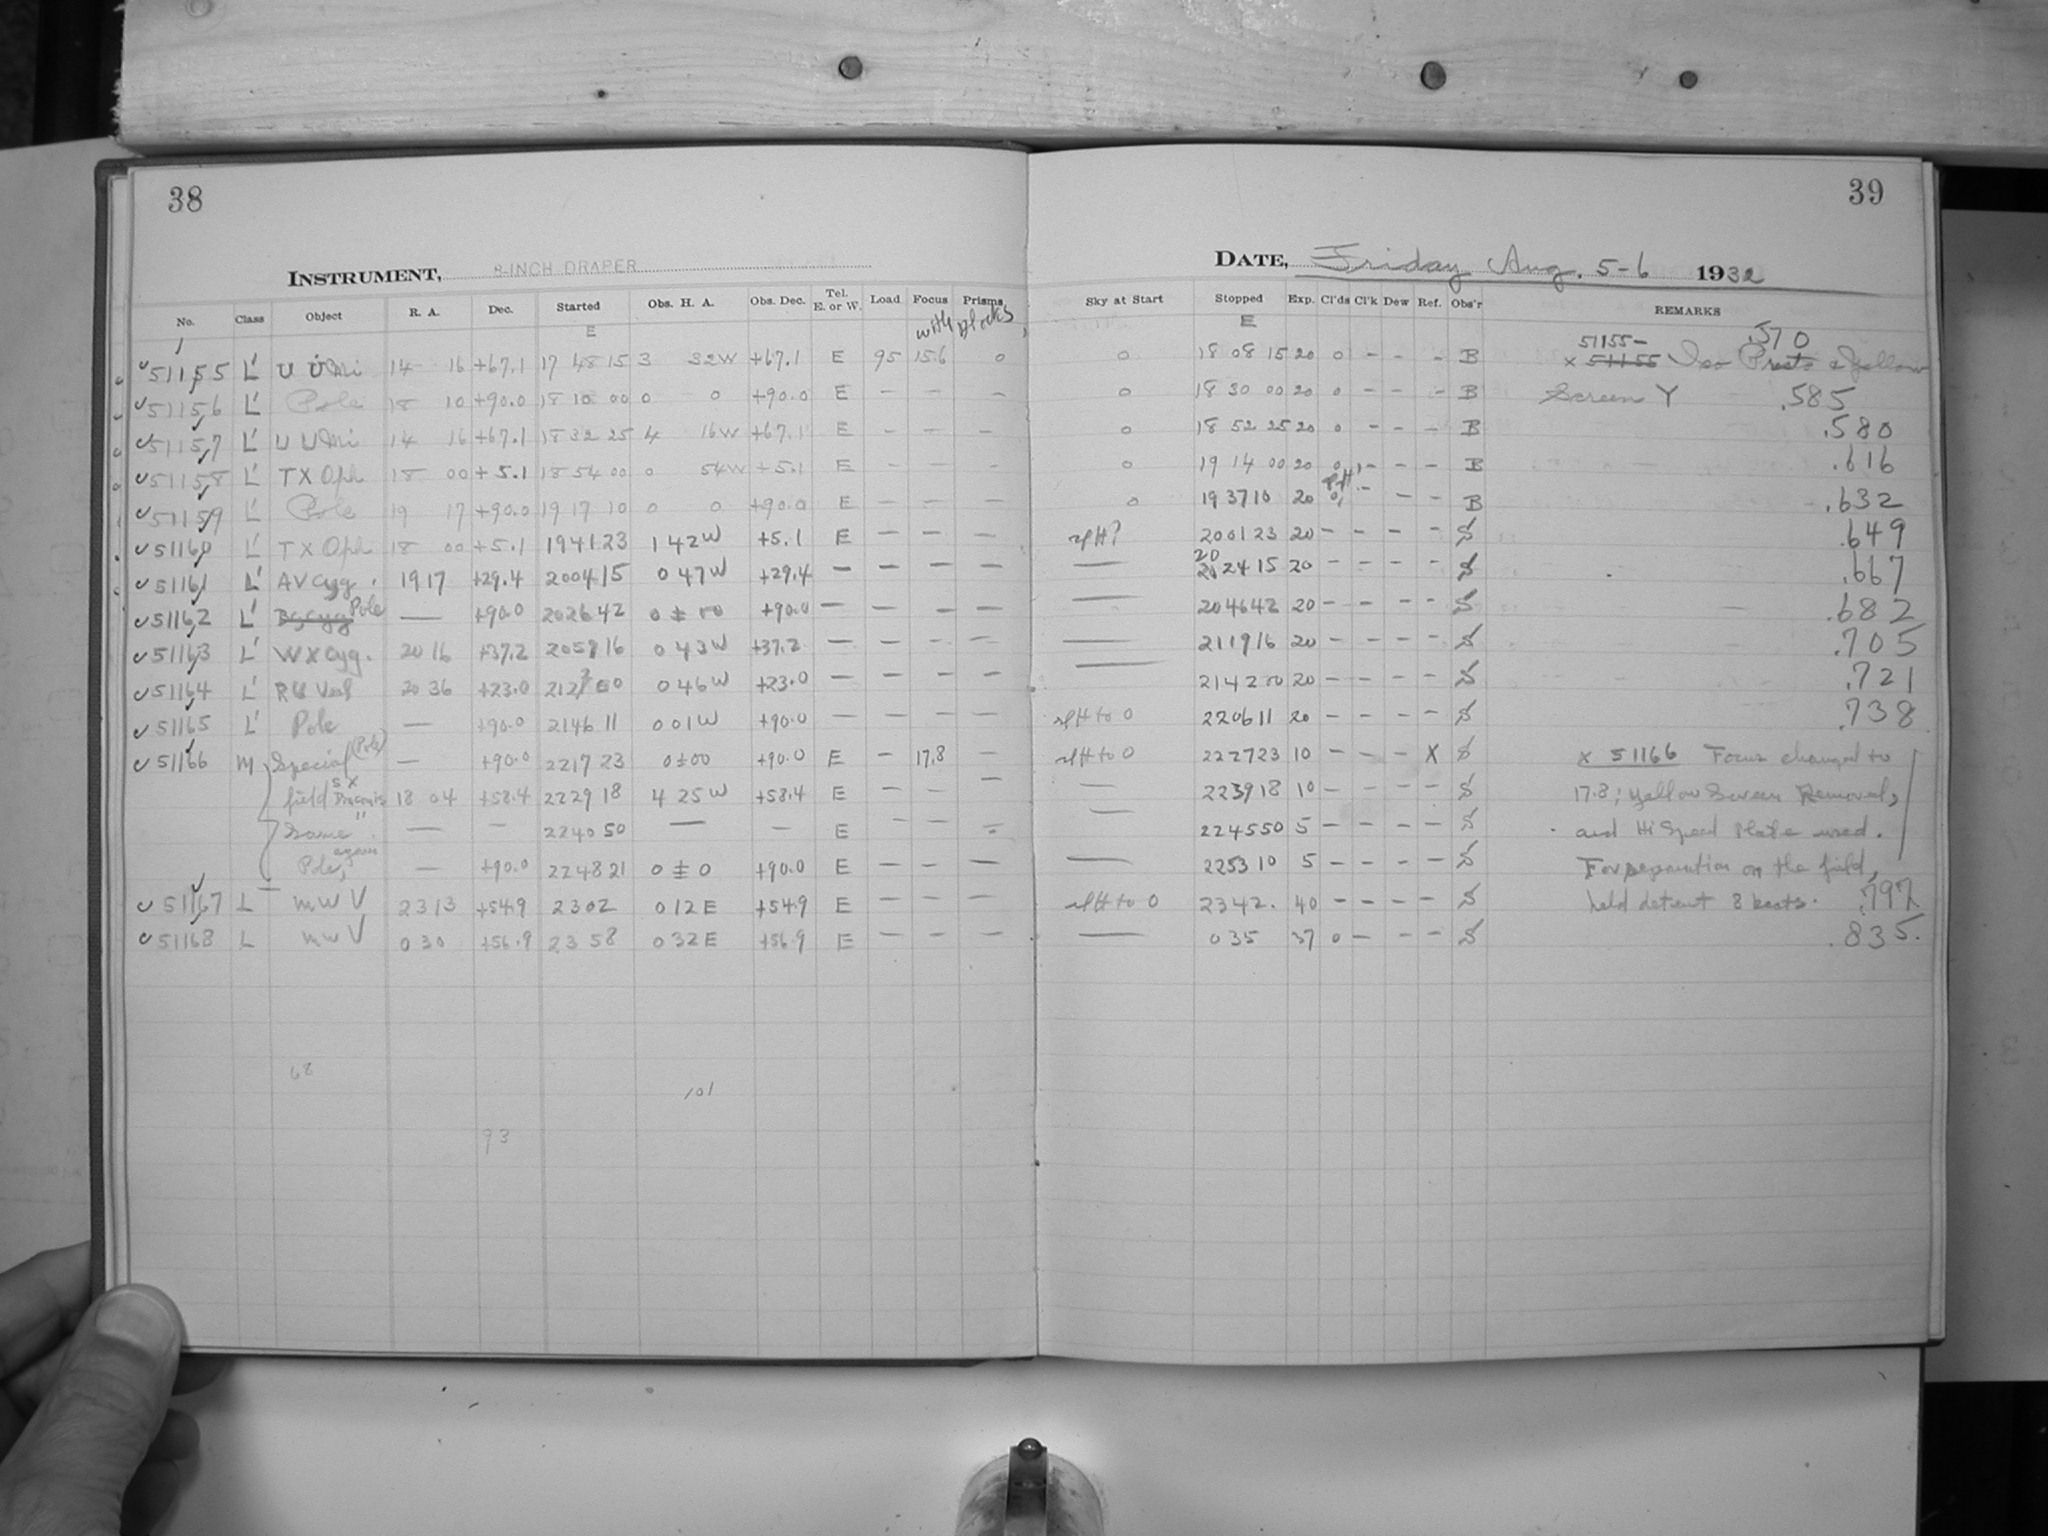 38
INSTRUMENT, 8-INCH DRAPER
No. Class Object R. A. Dec. Started Obs. H. A. Obs. Dec. Tel. E. or W. Load Focus Prisms
E with blocks
51155 L' U UMi 14 16 +67.1 17 48 15 3 32W +67.1 E 95 15.6 0
51156 L' Pole 18 10 +90.0 18 10 00 0 0 +90.0 E - - -
51157 L' U UMi 14 16 +67.1 18 32 25 4 16W +67.1 E - - -
51158 L' TX Oph 18 00 +5.1 18 54 00 0 54W +5.1 E - - -
51159 L' Pole 19 17 +90.0 19 17 10 0 0 +90.0 E - - -
51160 L' TX Oph 18 00 +5.1 19 41 23 1 42W +5.1 E - - -
51161 L' AV Cyg. 19 17 +29.4 20 04 15 0 47W +29.4 - - - -
51162 L' Pole — +90.0 20 26 42 0 ± 00 +90.0 - - - -
51163 L' WX Cyg. 20 16 +37.2 20 59 16 0 43W +37.2 - - - -
51164 L' RU Vul 20 36 +23.0 21 2 00 0 46W +23.0 - - - -
51165 L' Pole — +90.0 21 46 11 0 01W +90.0 - - - -
51166 M Special (Pole) — +90.0 22 17 23 0 ± 00 +90.0 E - 17.8 -
field SX Draconis 18 04 +58.4 22 29 18 4 25W +58.4 E - - -
Same " — - 22 40 50 — - E - - -
Pole, again — +90.0 22 48 21 0 ± 0 +90.0 E - - -
51167 L MW V 23 13 +54.9 23 02 0 12 E +54.9 E - - -
51168 L MW V 0 30 +56.9 23 58 0 32 E +56.9 E - - -
68
101
93
39
DATE, Friday Aug. 5-6 1932
Sky at Start Stopped Exp. Cl'ds Cl'k Dew Ref. Obs'r REMARKS
E
0 18 08 15 20 0 - - - B 51155- x 51155 Iso & Yellow .570
0 18 30 00 20 0 - - - B Screen Y .585
0 18 52 25 20 0 - - - B .580
0 19 14 00 20 0 - - - B .616
0 19 37 10 20 - - - B .632
20 01 23 20 - - - - S .649
— 20 24 15 20 - - - - S .667
— 20 46 42 20 - - - - S .682
— 21 19 16 20 - - - - S .705
— 21 42 00 20 - - - - S .721
to 0 22 06 11 20 - - - - S .738
to 0 22 27 23 10 - - - X S x 51166 Focus changed to
— 22 39 18 10 - - - - S 17.8; Yellow Screen Removed,
— 22 45 50 5 - - - - S and Hi Speed Plate used.
— 22 53 10 5 - - - - S For separation on the field,
to 0 23 42. 40 - - - - S held detent 8 beats. .797
— 0 35 37 0 - - - S .835.